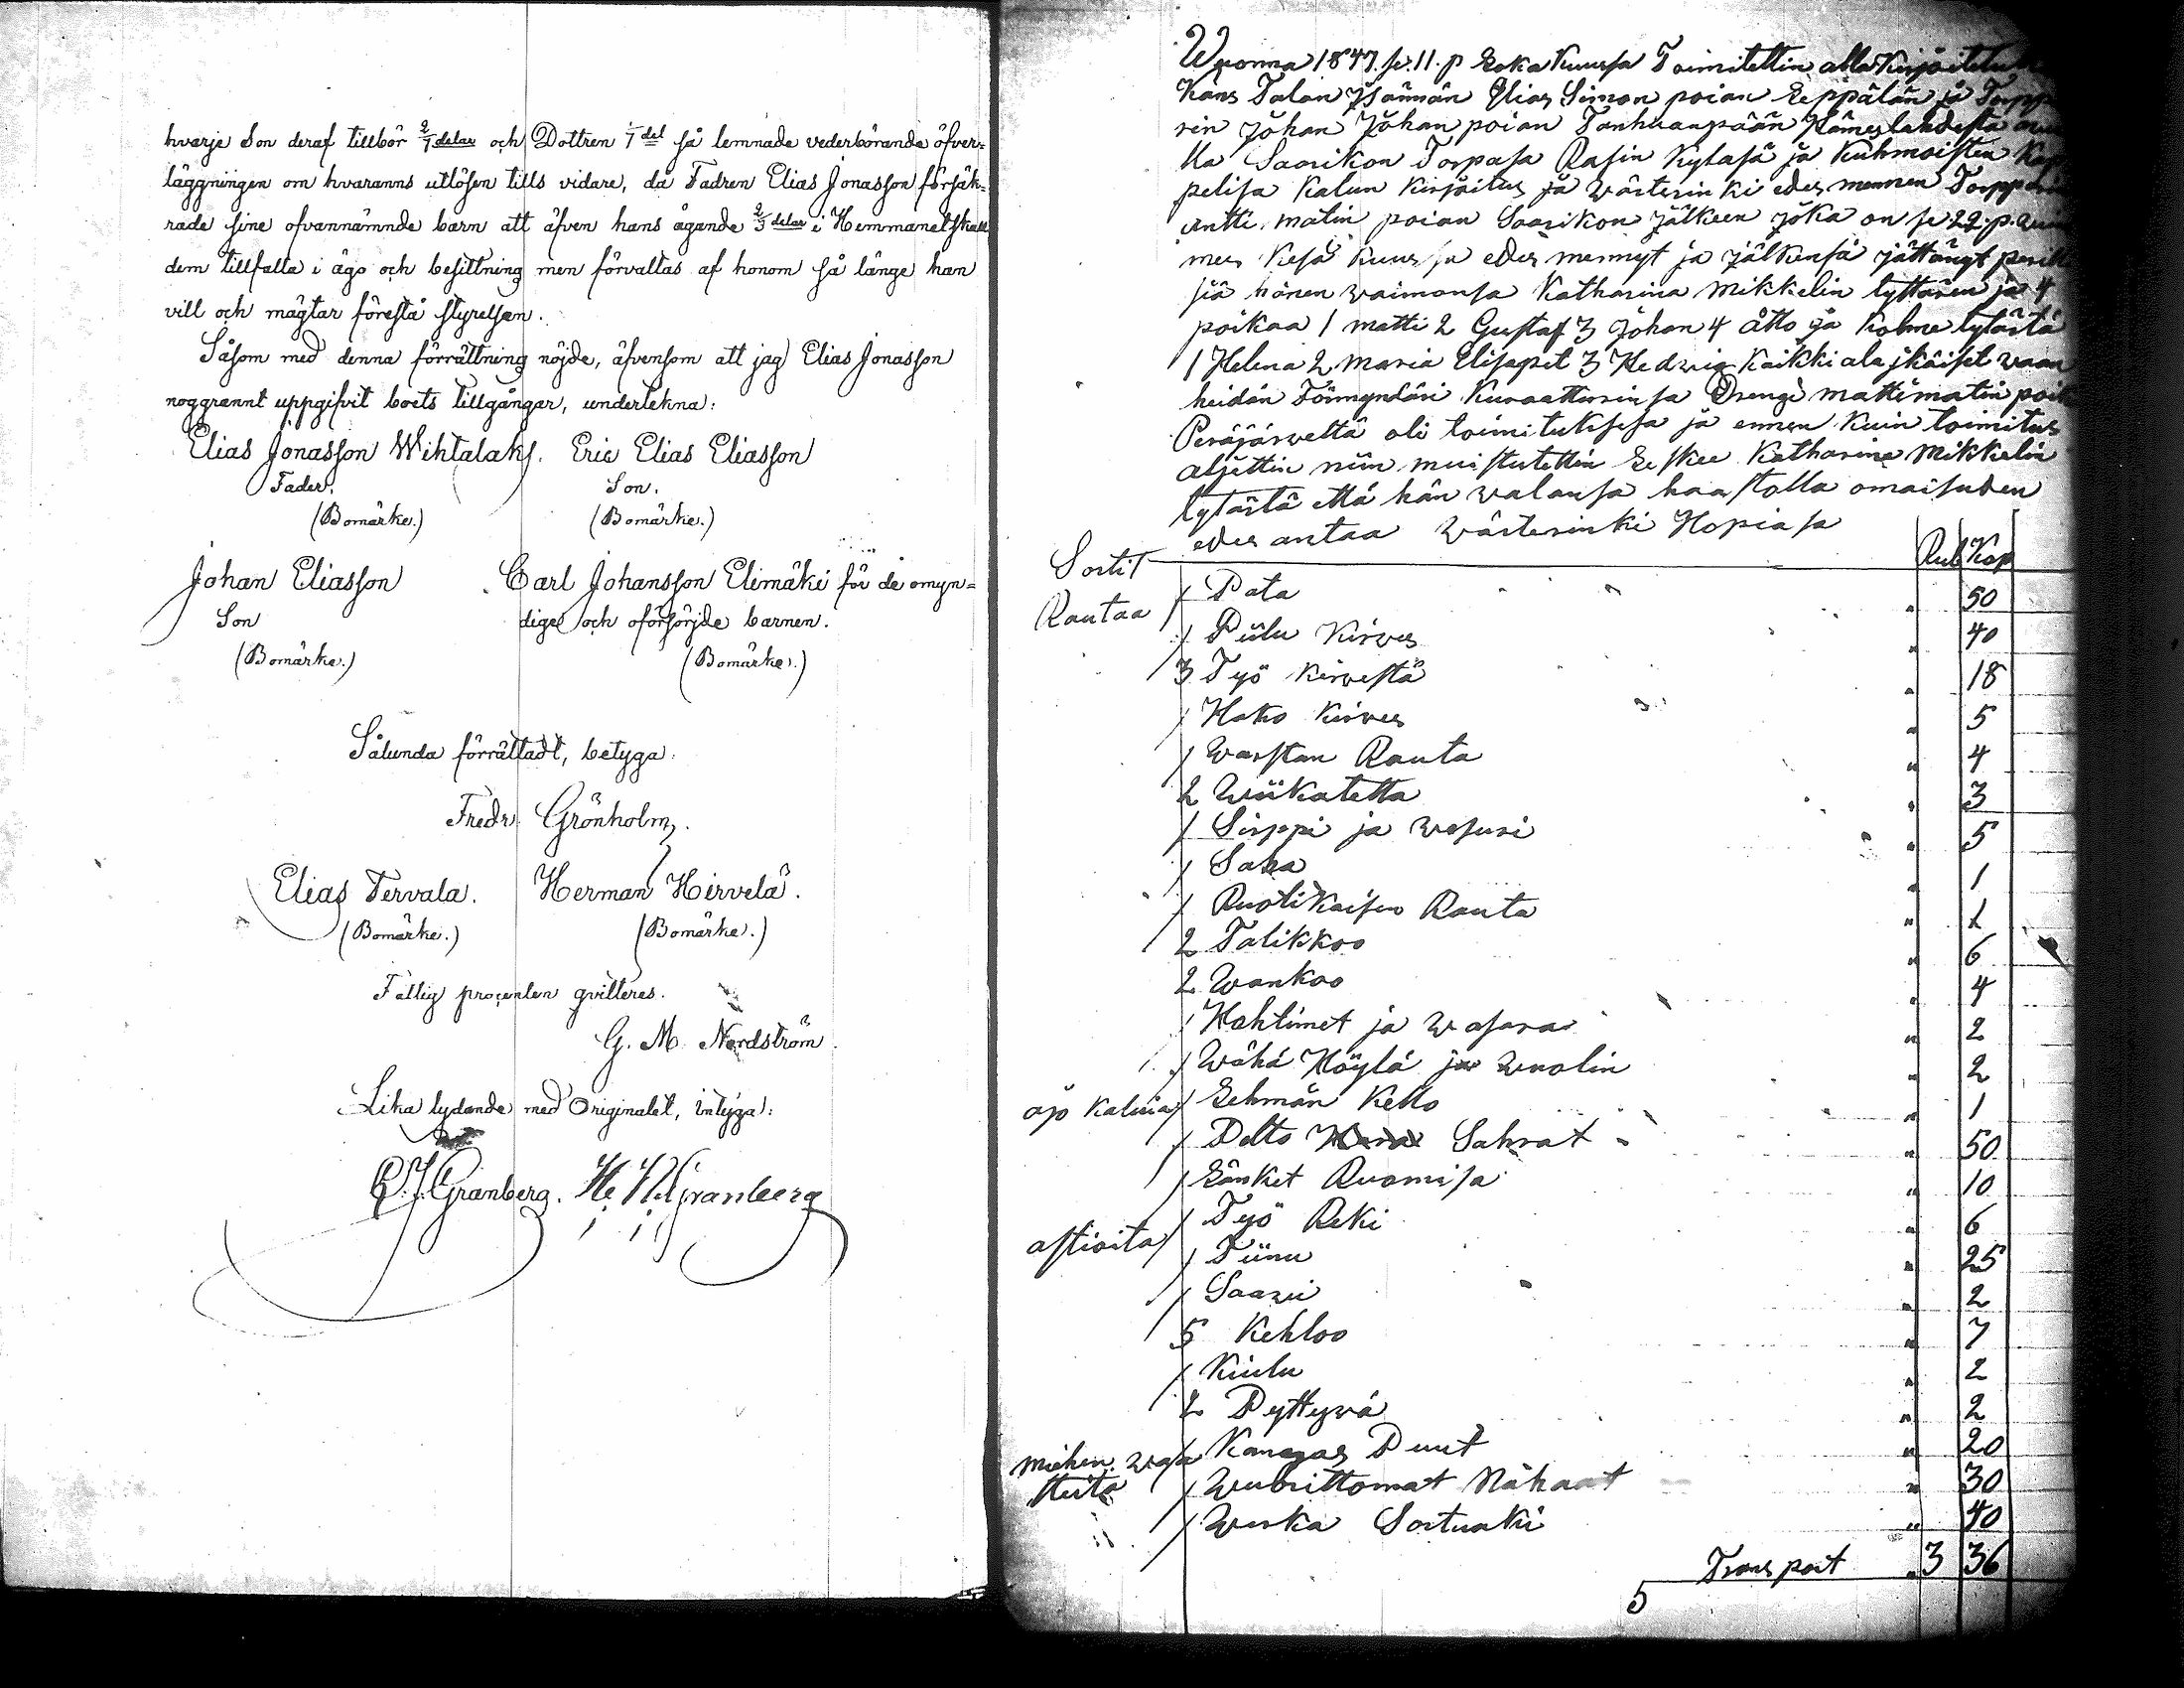 hvarje Son deraf tillhör 2/7 delar och Dottren 1/7 del så lemnade vederbörande öfver=
läggningen om hvaranns utlösen tills vidare, då Fadren Elias Jonasson försäk=
rade sine ofvannämnde barn att äfven hans ägande 2/3 delar i Hemmanet skall
dem tillfalla i ägo och besittning men förvaltas af honom så länge han
vill och mägtar förestå styrelsen.
Såsom med denna förrättning nöjde, äfvensom att jag Elias Jonasson
noggrannt uppgifvit boets tillgångar, undertekna:
Elias Jonasson Wihtalaks. Eric Elias Eliasson
Fader. Son.
(Bomärke.) (Bomärke.)
Johan Eliasson Carl Johansson Elimäki för de omyn=
Son dige och oförsörjde barnen.
(Bomärke.) (Bomärke.)
Sålunda förrättadt, betyga:
Fredr. Grönholm.
Elias Tervala. Herman Hirvelä.
(Bomärke.) (Bomärke.)
Fattig procenten qvitteres.
G. M. Nordström
Lika lydande med Originalet, intyga:
C. J. Granberg. He. Hd. Granberg
Wuonna 1847. se. 11. p Loka Kuusa Toimitettin alla Kirjoitetu
Kans Talon Jsännän Elias Simon poian Seppälän ja Torppa
rin Johan Johan poian Tanhuanpään Hämeslahdesta
lla Saarikon Torpasa Rasin Kyläsä ja Kuhmoisten Kap
pelisa Kalun Kirjoitus ja wärterinki edes mennen Torpparin
antti matin poian Saarikon jälkeen joka on se 22. p.
mes Kesä Kuusa edes mennyt ja jälkensä jättänyt perilli
siä hänen waimonsa Katharina Mikkelin tyttären ja 4
poikaa 1 matti 2 Gustaf 3 Johan 4 åtto ja Kolme tytärtä
1 Helena 2 maria Elisapet 3 Hedvig Kaikki ala jkäiset waan
heidän Förmyndäri Kuraattorinsa Drengi matti matin poik
Peräjärveltä oli toimituksesa ja ennen Kuin toimitus
aljettin niin muistutettin Leskee Katharina Mikkelin
tytärtä että hän walansa haastolla omaisuden
edes antaa wärterinki Hopiasa
Sortit Rub Kop
Rautaa 1 Pata " 50
1 Piilu Kirves " 40
3 Työ Kirvestä " 18
1 Hako Kirves " 5
1 warstan Rauta " 4
2 Wiikatetta " 3
1 Sirppi ja wesuri " 5
1 Saha " 1
1 Ruotikaisen Rauta " 1
2 Talikkoo " 6
2 Wankoo " 4
1 Hohtimet ja wasara " 2
1 Wähä Höylä ja wuolin " 2
ajo Kaluia 1 Lehmän Kello " 1
1 Pelto Sahrat " 50
1 Länket Ruomisa " 10
1 Työ Reki " 6
astioita 1 Tiinu " 25
1 Saavi " 2
5 Kehloo " 7
1 Kiulu " 2
2 Pyttywä " 2
1 Kangas Puut " 20
miehen waa 1 wuorittomat Nahaat " 30
tteita 1 Werka Sortuuki " 40
Transport " 3 36
5